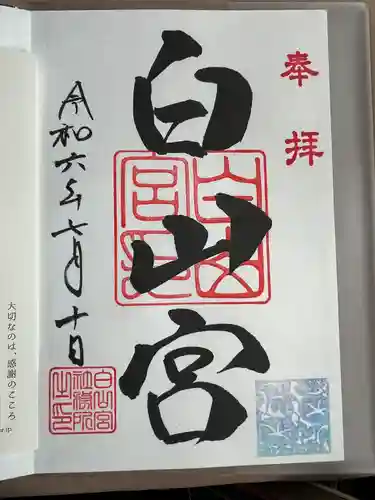 奉拝
白山宮
白山宮印
令和六年七月十日
白山宮
社務所
之印
大切なのは、感謝のこころ